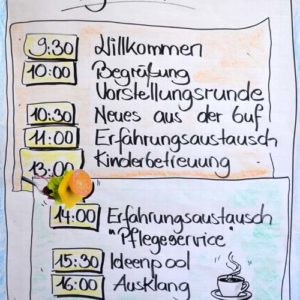 9:30 Willkommen
10:00 Begrüßung
Vorstellungsrunde
10:30 Neues aus der Guf
11:00 Erfahrungsaustausch
Kinderbetreuung
13:00
14:00 Erfahrungsaustausch
"Pflegeservice"
15:30 Ideenpool
16:00 Ausklang